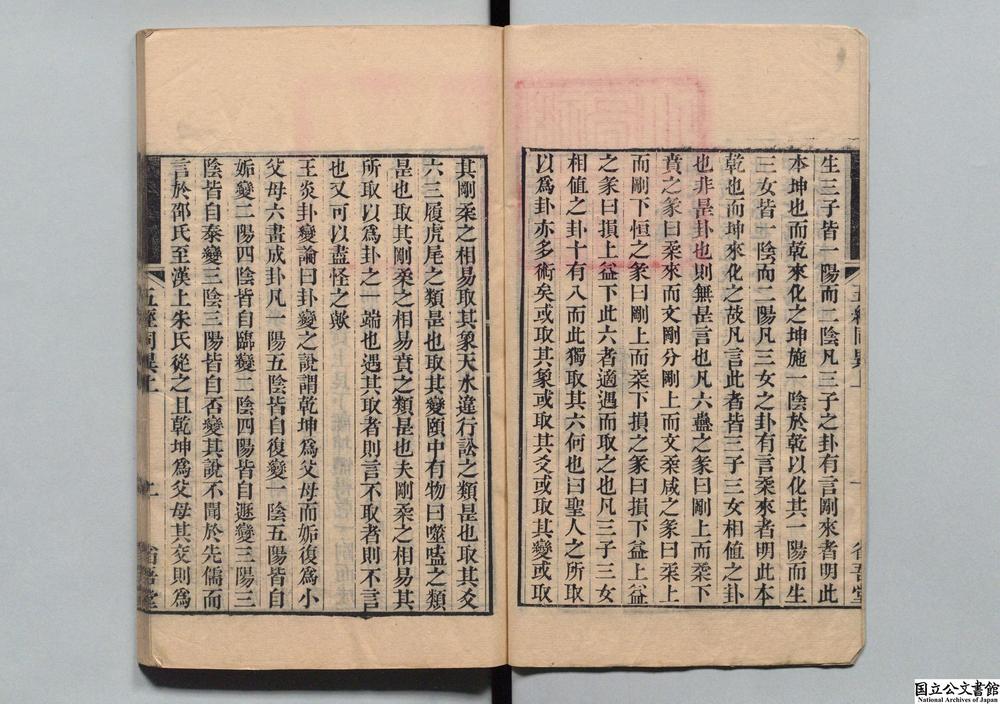 生三子皆一陽而二陰凡三子之卦有言剛來者明此
本坤也而乾來化之坤施一陰於乾以化其一陽而生
三女皆一陰而二陽凡三女之卦有言柔來者明此本
乾也而坤來化之故凡言此者皆三子三女相值之卦
也非是卦也則無是言也凡六蠱之彖曰剛上而柔下
賁之彖曰柔來而文剛分剛上而文柔咸之彖曰柔上
而剛下恒之彖曰剛上而柔下損之彖曰損下益上益
之彖曰損上益下此六者適遇而取之也凡三子三女
相值之卦十有八而此獨取其六何也曰聖人之所取
以為卦亦多術矣或取其象或取其爻或取其變或取
其剛柔之相易取其象天水違行訟之類是也取其爻
六三履虎尾之類是也取其變頤中有物曰噬嗑之類
是也取其剛柔之相易賁之類是也夫剛柔之相易其
所取以為卦之一端也遇其取者則言不取者則不言
也又可以盡怪之歟
王炎卦變論曰卦變之說謂乾坤為父母而姤復為小
父母六畫成卦凡一陽五陰皆自復變一陰五陽皆自
姤變二陽四陰皆自臨變二陰四陽皆自遯變三陽三
陰皆自泰變三陰三陽皆自否變其說不聞於先儒而
言於邵氏至漢上朱氏從之且乾坤為父母其交則為
五經同異上
二
省吾堂
国立公文書館
National Archives of Japan